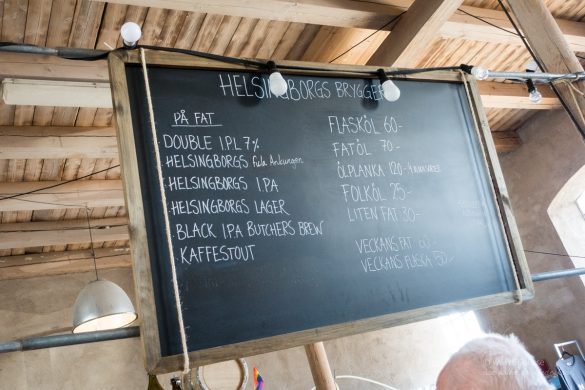 HELSINGBORGS BRYGGERI
PÅ FAT
DOUBLE I.P.L 7%
HELSINGBORGS Fula Ankungen
HELSINGBORGS IPA
HELSINGBORGS LAGER
BLACK IPA BUTCHERS BREW
KAFFESTOUT
FLASKÖL 60-
FATÖL 70-
ÖLPLANKA 120-
FOLKÖL 25-
LITEN FAT 30-
VECKANS FAT 60-
VECKANS FLASKA 50-